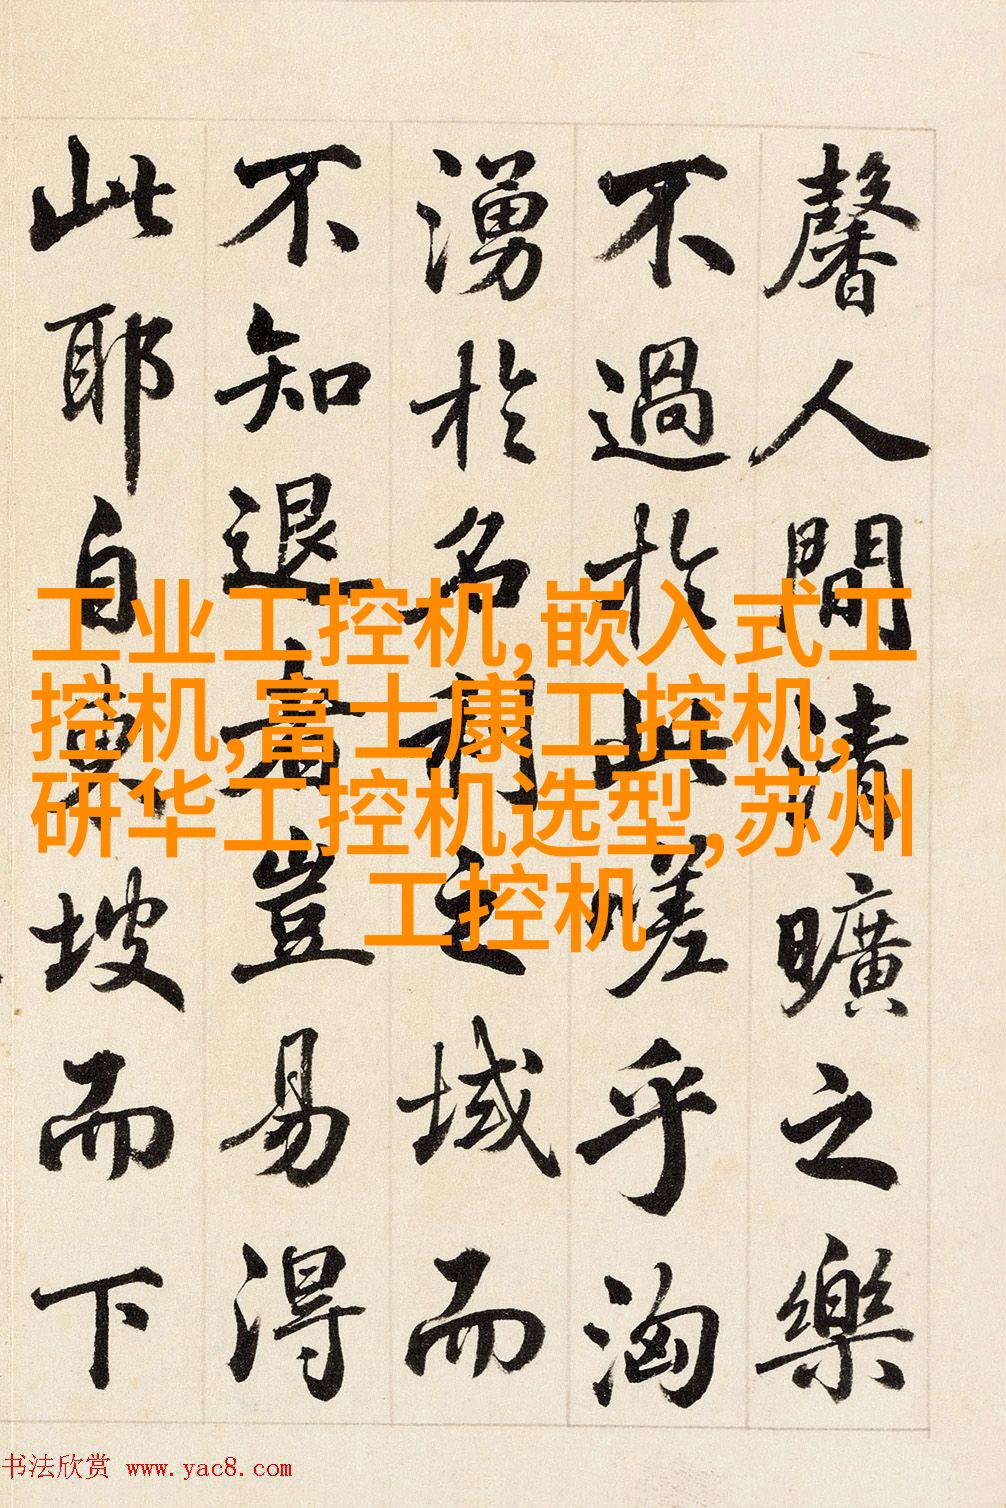 馨人間清曠之樂
不過於此嗟乎洶
湧於名利之域而
不知退者豈易得
此耶自東坡而下
工业工控机,嵌入式工
控机,富士康工控机,
研华工控机选型,苏州
工控机
书法欣赏 www.yac8.com